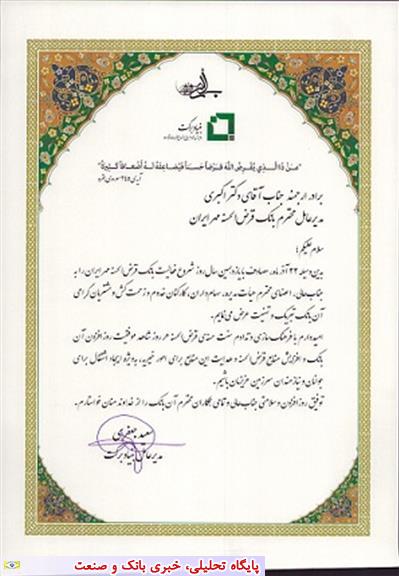 بنیاد برکت
"مَنْ ذَا الَّذِي يُقْرِضُ اللَّهَ قَرْضاً حَسَناً فَيُضَاعِفَهُ لَهُ أَضْعَافاً كَثِيرَةً"
برادر ارجمند جناب آقای دکتر اکبری
مدیرعامل محترم بانک قرض الحسنه مهر ایران
سلام علیکم؛
بدین وسیله ۲۲ آذر ماه، مصادف با یازدهمین سال روز شروع فعالیت بانک قرض الحسنه مهر ایران را به
جناب عالی، اعضای محترم هیأت مدیره، سهام داران، کارکنان خدوم و زحمت کش و مشتریان گرامی
آن بانک تبریک و تهنیت عرض می نمایم.
امیدوارم با فرهنگ سازی و تداوم سنت حسنه ی قرض الحسنه هر روز شاهد موفقیت روز افزون آن
بانک و افزایش منابع قرض الحسنه و هدایت این منابع برای امور خیریه، به ویژه ایجاد اشتغال برای
جوانان و نیازمندان سرزمین عزیزمان باشیم.
توفیق روز افزون و سلامتی جناب عالی و تمامی همکاران محترم آن بانک را از خداوند منان خواستارم.
سعید جعفری
مدیرعامل بنیاد برکت
پایگاه تحلیلی، خبری بانک و صنعت